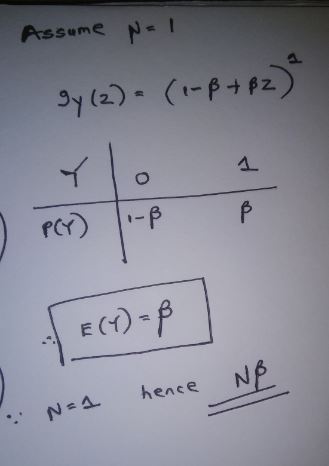 Assume N = 1
gy(z) = (1-β+βz)¹
Y | 0 1
P(Y) | 1-β β
∴ E(Y) = β
∵ N=1 hence Nβ